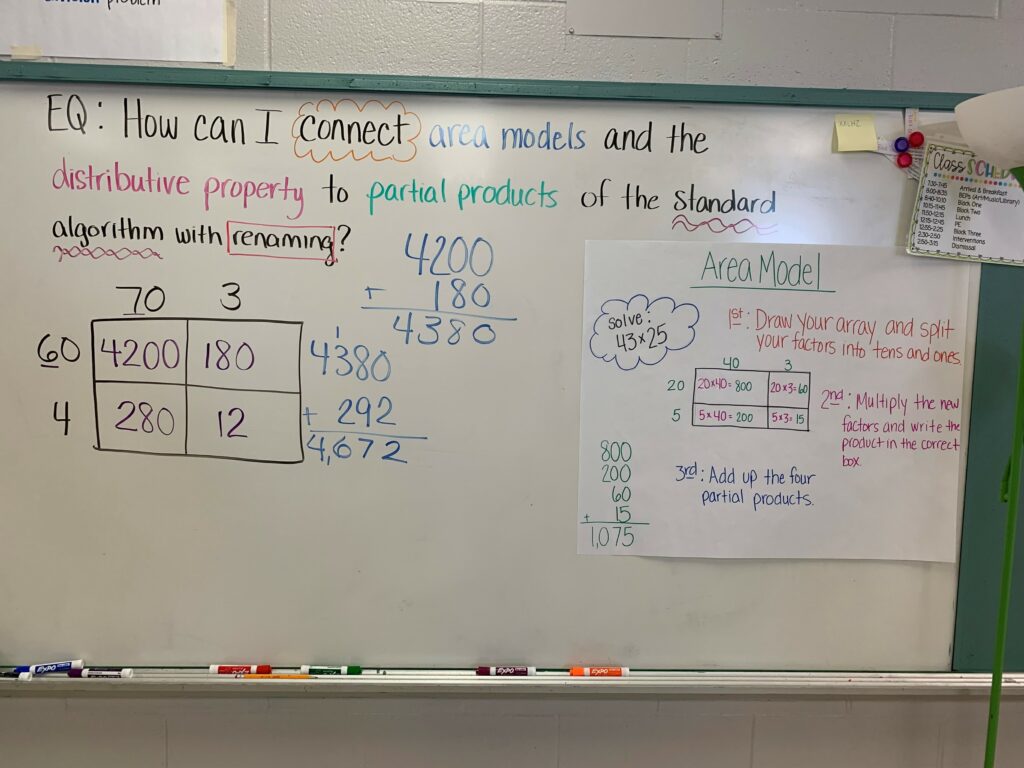 division problem
EQ: How can I connect area models and the
distributive property to partial products of the standard
algorithm with renaming?
70 3
60 4200 180
4 280 12
4200
+ 180
4380
1
4380
+ 292
4,672
Area Model
solve:
43×25
1st: Draw your array and split
your factors into tens and ones.
40 3
20 20×40=800 20×3=60
5 5×40=200 5×3=15
2nd: Multiply the new
factors and write the
product in the correct
box.
800
200
60
+ 15
1,075
3rd: Add up the four
partial products.
Class SCHED
7:30-7:45 Arrival & Breakfast
8:00-8:35 BEPs (Art/Music/Library)
8:40-10:10 Block One
10:15-11:45 Block Two
11:50-12:15 Lunch
12:15-12:45 PE
12:55-2:25 Block Three
2:30-2:50 Interventions
2:50-3:15 Dismissal
EXPO
EXPO
EXPO
EXPO